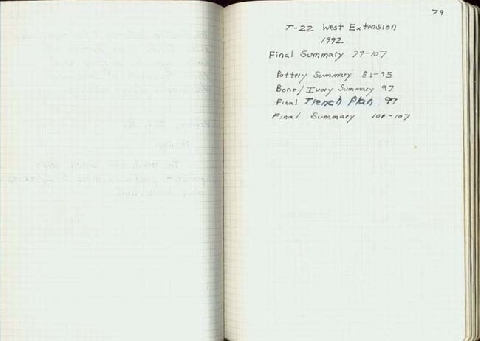 79
T-22 West Extension
1992
Final Summary 79-107
Pottery Summary 81-95
Bone/Ivory Summary 97
Final Trench Plan 97
Final Summary 100-107